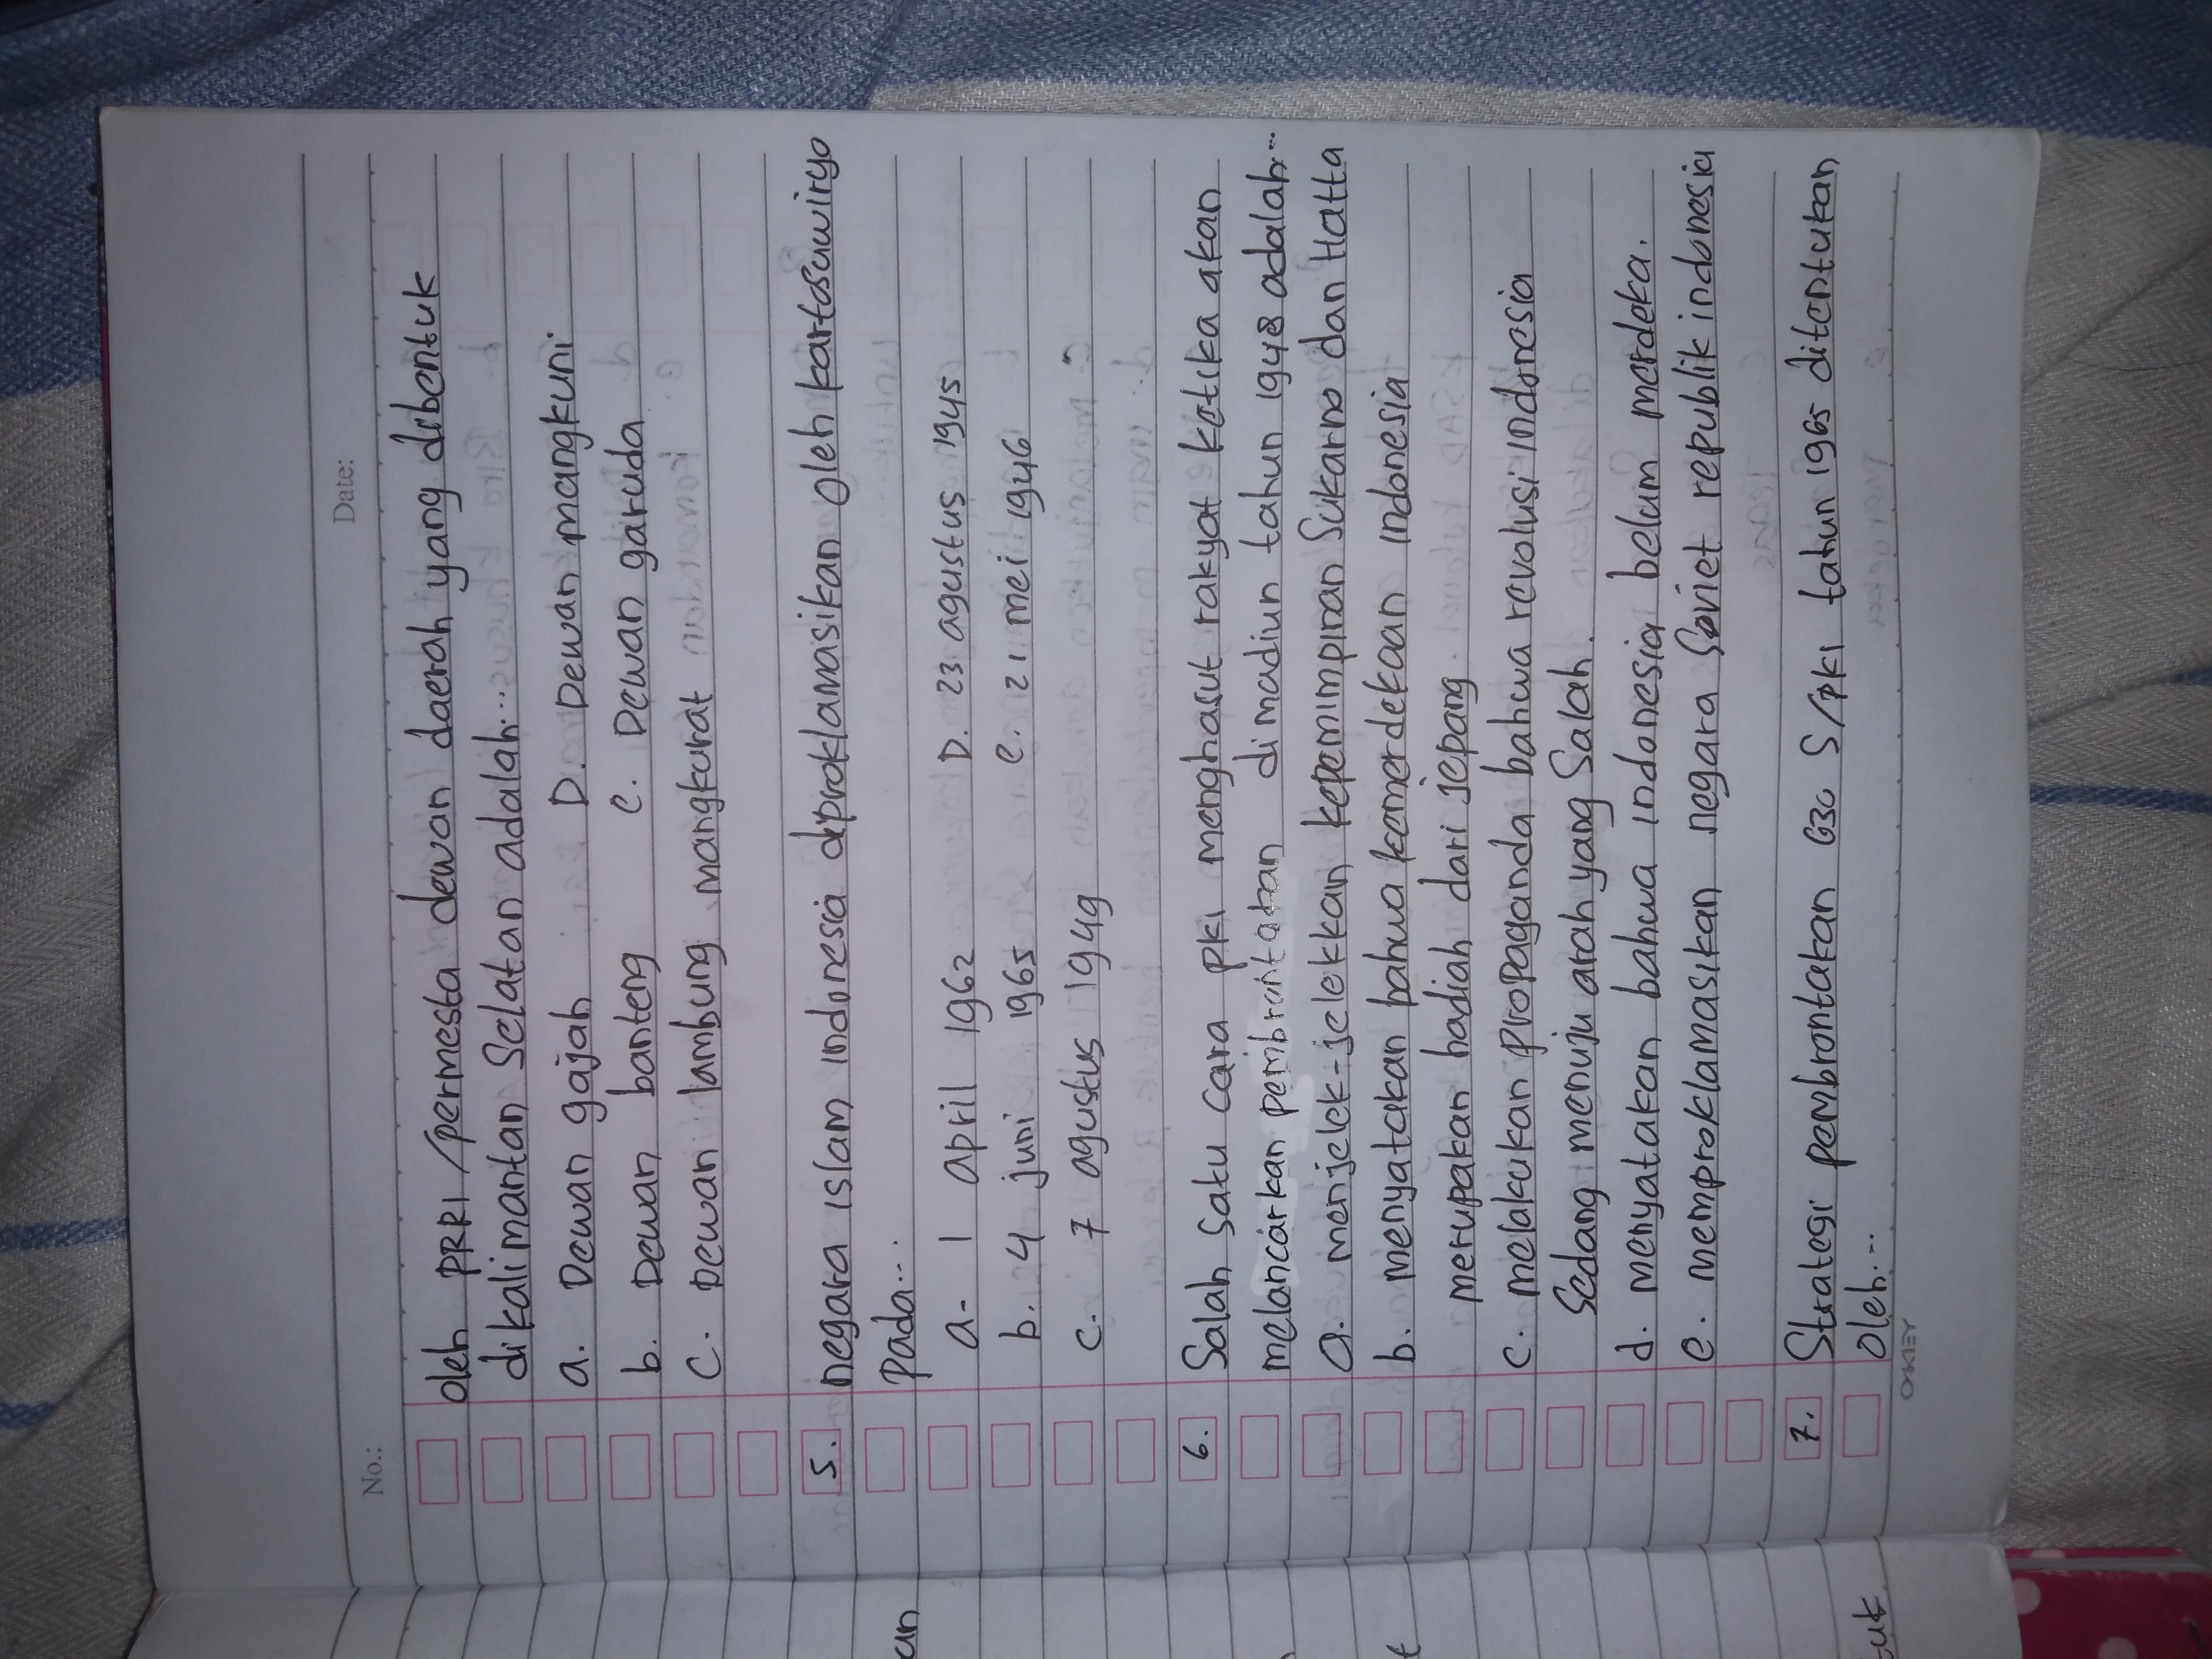 No.:
Date:
oleh PRRI/permesta dewan daerah yang dibentuk
dikalimantan Selatan adalah...
a. Dewan gajah D. Dewan mangkuni
b. Dewan banteng e. Dewan garuda
C. Dewan lambung mangkurat
5. negara islam indonesia diproklamasikan oleh kartosuwiryo
pada...
a. 1 april 1962 D. 23 agustus 1945
b. 4 juni 1965 e. 21 mei 1946
c. 7 agustus 1949
6. Salah satu cara pki menghasut rakyat ketika akan
melancarkan pembrontakan dimadiun tahun 1948 adalah...
a. menjelek-jelekkan kepemimpinan Sukarno dan Hatta
b. menyatakan bahwa kemerdekaan indonesia
merupakan hadiah dari jepang.
c. melakukan propaganda bahwa revolusi indonesia
Sedang menuju arah yang Salah.
d. menyatakan bahwa indonesia belum merdeka.
e. memproklamasikan negara Soviet republik indonesia
7. Strategi pembrontakan G30 S/pki tahun 1965 ditentukan
oleh...
OKEY
an
t
tuk